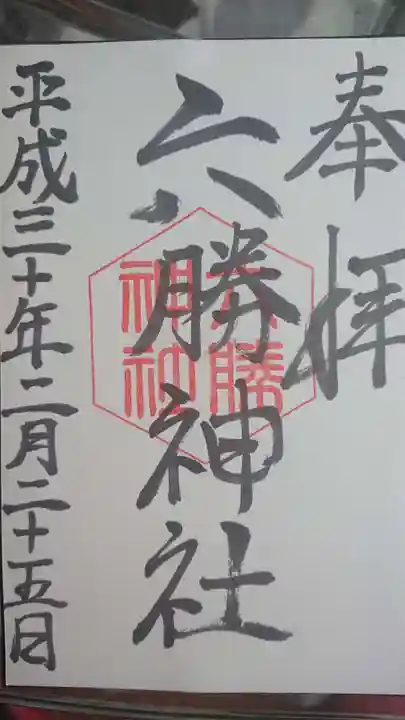 奉拝
六勝神社
六勝
神社
平成三十年二月二十五日